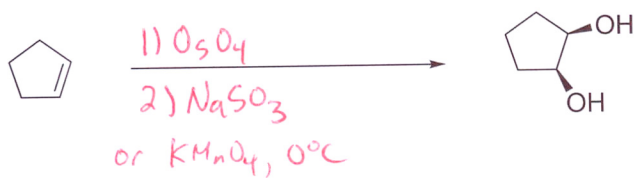 1) OsO4
2) NaSO3
or KMnO4, 0°C
OH
OH